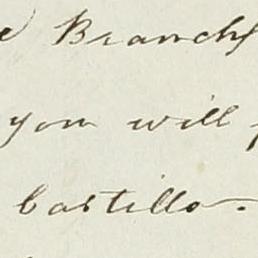 e Branch
you will
bastillo.